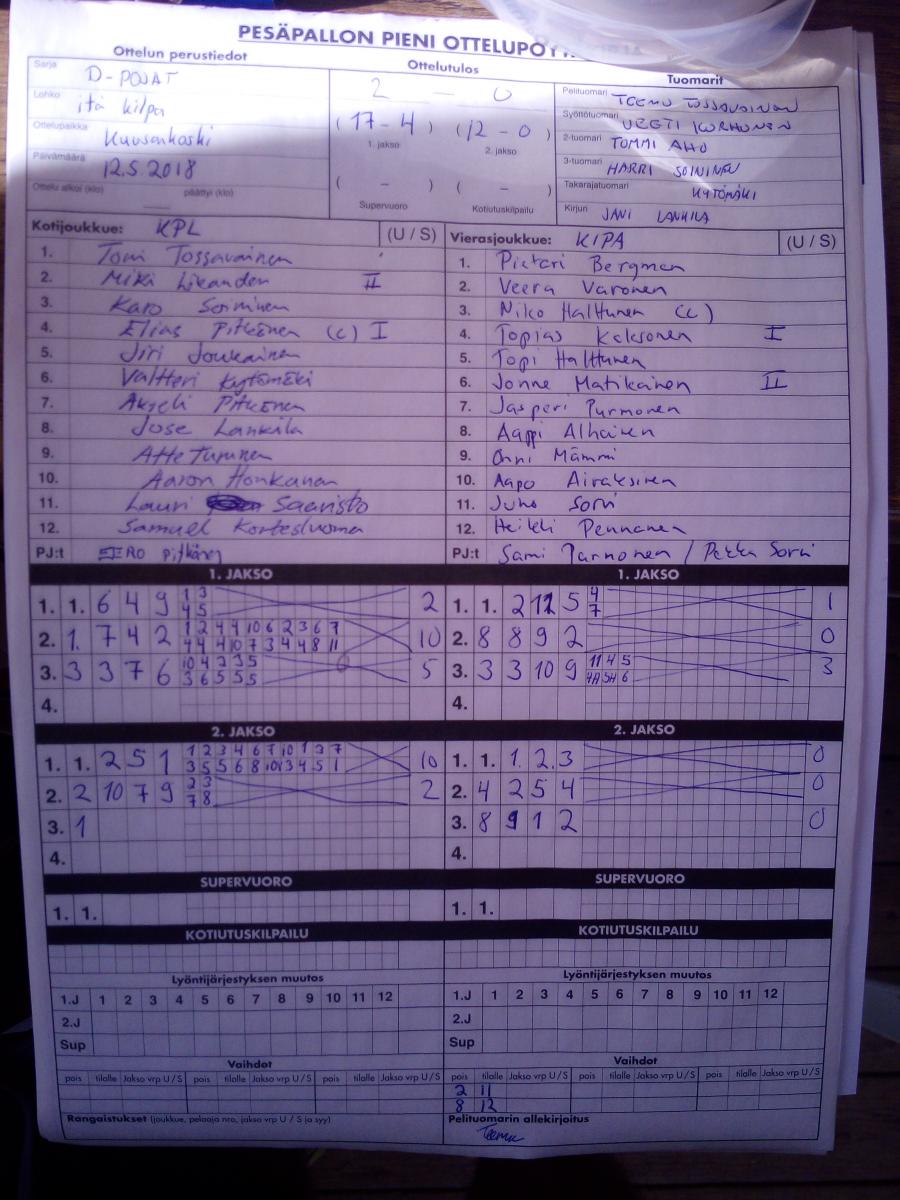 PESÄPALLON PIENI OTTELUPÖYTÄKIRJA
Ottelun perustiedot
Ottelutulos
Tuomarit
Sarja D-POJAT
Lohko itä kilpa
Ottelupaikka Kuusankoski
Päivämäärä 12.5.2018
Ottelu alkoi (klo) päättyi (klo)
2 – 0
(17-4) (12-0)
1. jakso 2. jakso
( - ) ( - )
Supervuoro Kotiutuskilpailu
Pelituomari TEEMU TOSSAVAINEN
Syöttötuomari VEETI KORHONEN
2-tuomari TOMMI AHO
3-tuomari HARRI SOININEN
Takarajatuomari KYTÖMÄKI
Kirjuri JANI LANKILA
Kotijoukkue: KPL (U / S)
1. Tomi Tossavainen
2. Miki Likanden II
3. Karo Soininen
4. Elias Pitkänen (c) I
5. Jiri Joukainen
6. Valtteri Kytömäki
7. Akseli Pitkänen
8. Jose Lankila
9. Atte Tuminen
10. Aaron Honkanen
11. Lauri Saaristo
12. Samuel Kortesluoma
PJ:t EERO Pitkänen
Vierasjoukkue: KIPA (U / S)
1. Pietari Bergman
2. Veera Varonen
3. Niko Halttunen (c)
4. Topias Koksonen I
5. Topi Halttunen
6. Jonne Matikainen II
7. Jasperi Purmonen
8. Aappi Alhainen
9. Onni Mämmi
10. Aapo Airaksinen
11. Juho Sorvi
12. Heikki Pennanen
PJ:t Sami Parnonen / Pekka Sorvi
1. JAKSO
1. 1. 6 4 9 1 3 2
4 5
2. 1. 7 4 2 1 2 4 4 10 6 2 3 6 7 10
4 4 4 10 7 3 4 4 8 11
3. 3 3 7 6 10 4 2 3 5 5
3 6 5 5 5
4.
1. JAKSO
1. 1. 2 11 5 4 1
7
2. 8 8 9 2 0
3. 3 3 10 9 11 4 5 3
4A 5A 6
4.
2. JAKSO
1. 1. 2 5 1 1 2 3 4 6 7 10 1 3 7 10
3 5 5 6 8 10 13 4 5 1
2. 2 10 7 9 2 3 2
7 8
3. 1
4.
2. JAKSO
1. 1. 1. 2. 3 0
2. 4 2 5 4 0
3. 8 9 1 2 0
4.
SUPERVUORO
1. 1.
SUPERVUORO
1. 1.
KOTIUTUSKILPAILU
KOTIUTUSKILPAILU
Lyöntijärjestyksen muutos
1.J 1 2 3 4 5 6 7 8 9 10 11 12
2.J
Sup
Lyöntijärjestyksen muutos
1.J 1 2 3 4 5 6 7 8 9 10 11 12
2.J
Sup
Vaihdot
pois tilalle Jakso vrp U / S pois tilalle Jakso vrp U / S pois tilalle Jakso vrp U / S
Rangaistukset (joukkue, pelaaja nro, jakso vrp U / S ja syy)
Vaihdot
pois tilalle Jakso vrp U / S pois tilalle Jakso vrp U / S pois tilalle Jakso vrp U / S
2 11
8 12
Pelituomarin allekirjoitus
Teemu